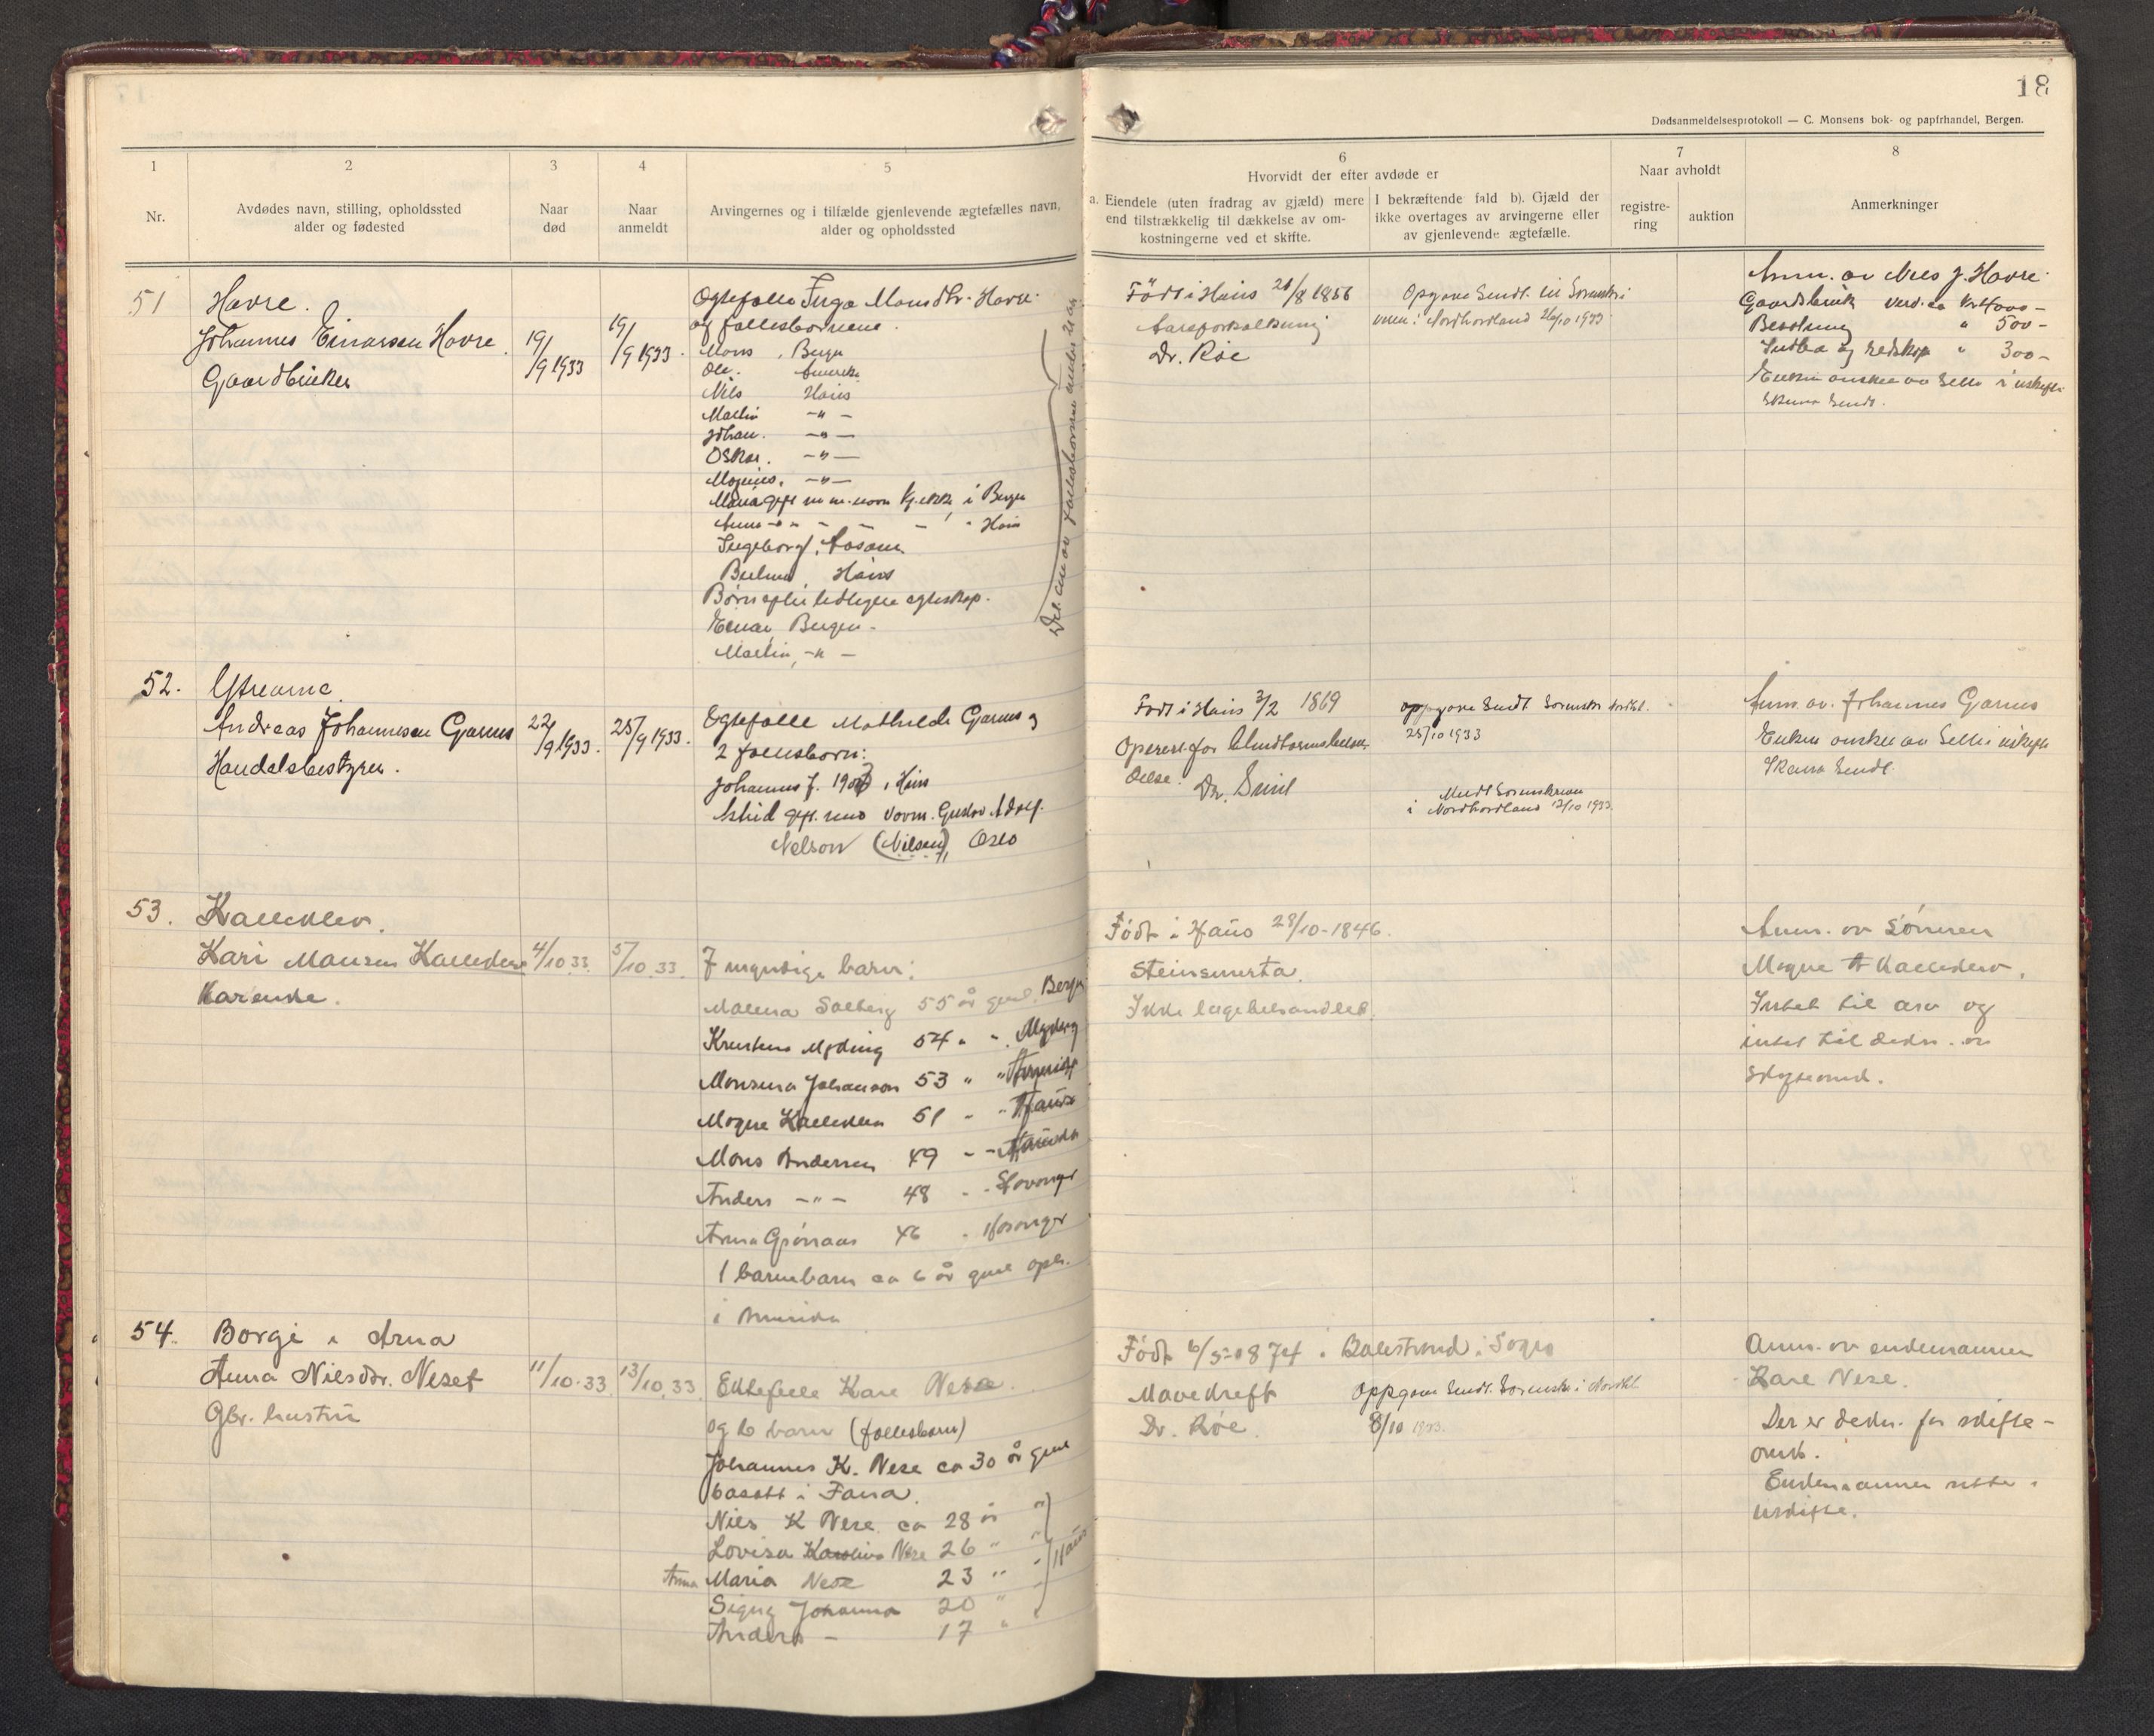 18
Dødsanmeldelsesprotokoll — C. Monsens bok- og papirhandel, Bergen.
1
Nr.
2
Avdødes navn, stilling, opholdssted
alder og fødested
3
Naar
død
4
Naar
anmeldt
5
Arvingernes og i tilfælde gjenlevende ægtefælles navn,
alder og opholdssted
6
Hvorvidt der efter avdøde er
a. Eiendele (uten fradrag av gjæld) mere
end tilstrækkelig til dækkelse av om-
kostningerne ved et skifte.
I bekræftende fald b). Gjæld der
ikke overtages av arvingerne eller
av gjenlevende ægtefælle.
7
Naar avholdt
registre-
ring
auktion
8
Anmerkninger
51
Havre.
Johannes Einarsen Havre.
Gaardbruker
19/
/9 1933
19/
/9 1933.
Mons, Bergen
Ole. Amerika
Nils Haus
Martin -"-
Johan. -"-
Oskar. -"-
Magnus, -"-
i Bergen
Haus
Ingeborg,
Haus
Børn efter tidligere egteskap.
Einar, Bergen-
Martin, -"-
Født i Haus 21/8 1856
Aareforkalkning
Dr. Röe
Opgave sendt til Sorenskri
veren i Nordhordland 26/10 1933
Anm. av Nils J. Havre.
Gaardsbruk Verdi ca
Besetning " 500-
Indbo og redskap " 300-
Enken ønsker at sitte i uskiftet
Skema sendt.
52.
Ytrearne
Andreas Johannesen Garnes
Handelsbestyrer.
22/
/9 1933.
25/
/9 1933.
Egtefelle Mathilde Garnes og
2 fellesbørn:
Johannes J. i Haus
Astrid gift med Gustav Adolf
Nelson (Nilsen), Oslo
Født i Haus 3/2 1869
Operert for
Dr.
oppgave sendt Sorenskr. Nordhl.
25/10 1933
Meldt Sorenskriveren
i Nordhordland 12/10 1933.
Anm. av. Johannes Garnes
Enken ønsker at sitte i uskifte
Skema sendt.
53.
Kalleklev.
Kari Monsen Kalleklev
Kårenke.
4/10.33.
5/10.33.
7 myndige barn:
Malena Solberg 55 år gml. Bergen
54 " "
Monsina Johanson 53 " " Amerika
Mogne Kalleklev 51 " " Haus
Mons Andersen 49 - -
Anders -"- 48 - - Stavanger
Anna 46 - Hosanger
1 barnebarn ca 6 år gml oph.
i Amerika
Født i Haus 28/10-1846.
Steinsmerta.
Ikke lægebehandlet.
Anm. av Sønnen
Mogne A Kalleklev.
Intet til arv og
intet til dekn. av
skifteomk.
54.
Borge i Arna
Anna Nilsdtr. Neset
Gbr. hustru
11/10.33
13/10.33.
Ektefelle Kare Nese.
og 6 barn (fellesbarn)
Johannes K. Nese ca 30 år gml
bosatt i Fana.
Nils K Nese ca 28 år "
Lovisa Karolina Nese 26 " "
Anna Maria Nese 23 " "
Haus
Signy Johanna 20 "
Anders - 17 "
Født 6/5-1874 i Balestrand i Sogn
Mavekreft
Dr. Röe.
Oppgave sendt. Sorenskr. i Nordhl.
8/10 1933.
Anm. av enkemannen
Kare Nese.
Der er dekn. for skifte-
omk.
Enkemannen sitte i
uskifte.